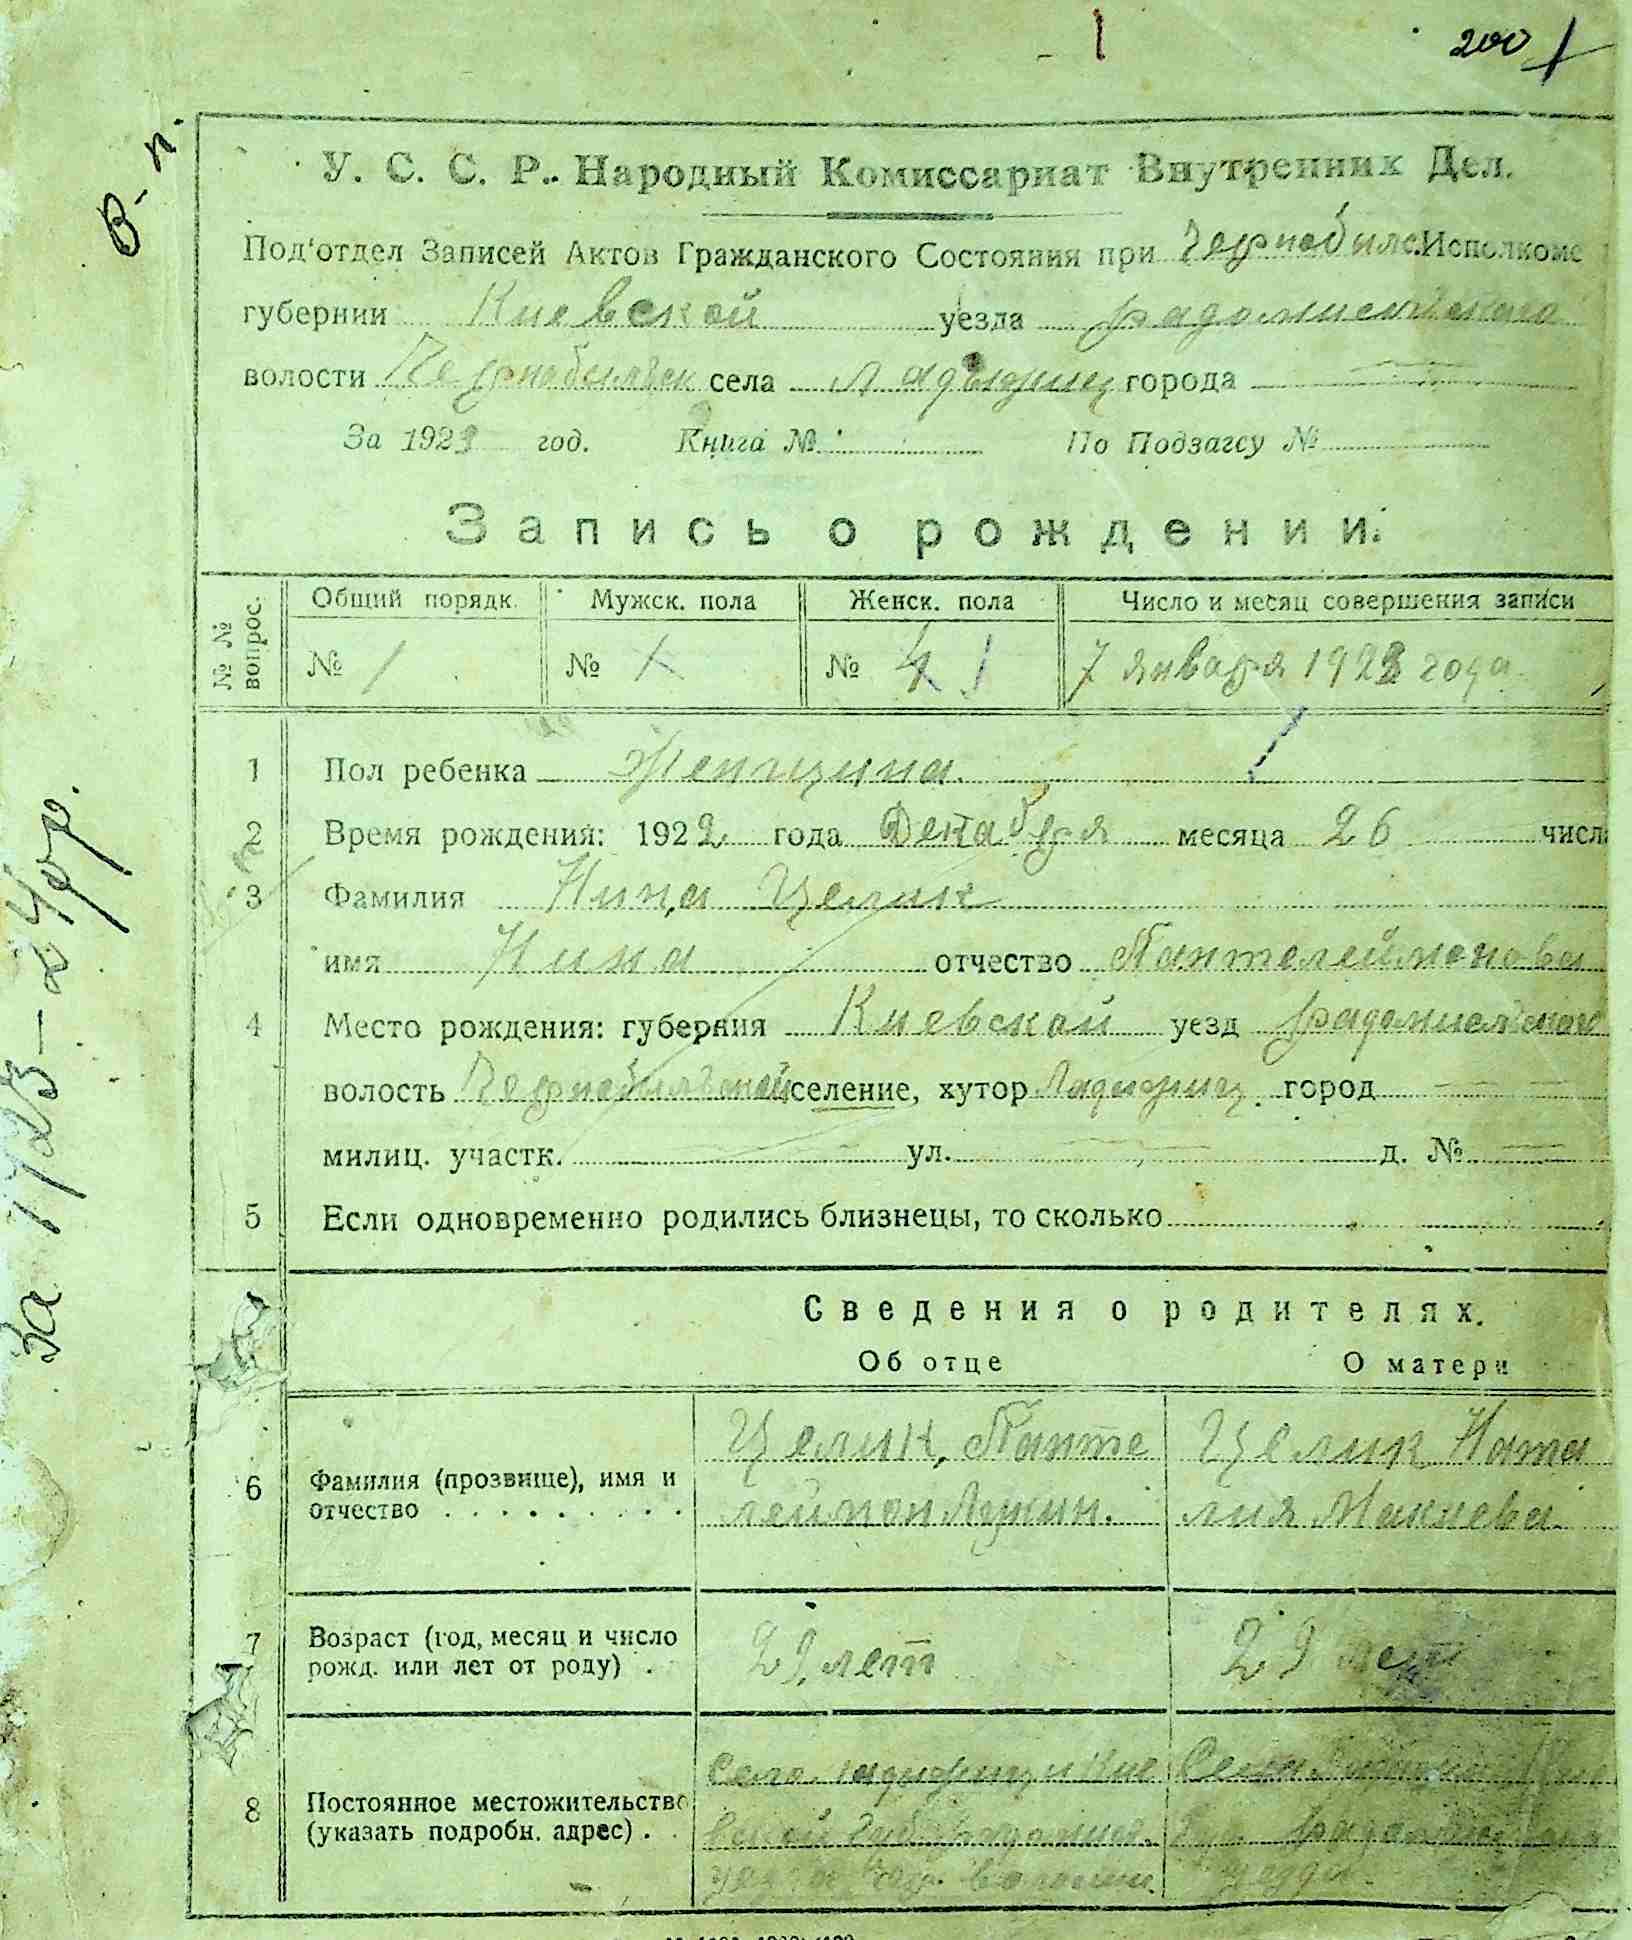 1
200
В-п.
У. С. С. Р. Народный Комиссариат Внутренних Дел.
Под'отдел Записей Актов Гражданского Состояния при Чернобилс. Исполкоме
губернии Киевской уезда радомисльского
волости Чернобильск села Ладыжич города —
За 1923 год. Книга № По Подзагсу №
Запись о рождении.
№№ вопрос. Общий порядк. Мужск. пола Женск. пола Число и месяц совершения записи
№ 1 № № 1 7 января 1923 года
1 Пол ребенка Женщина
2 Время рождения: 1922 года Декабря месяца 26 числа
3 Фамилия Нина Целик
имя Нина отчество Пантелеймонова
4 Место рождения: губерния Киевской уезд радомисльского
волость Чернобильской селение, хутор Ладижич. город —
милиц. участк. — ул. — д. № —
5 Если одновременно родились близнецы, то сколько
За 1923-24 гг.
Сведения о родителях.
Об отце О матери
6 Фамилия (прозвище), имя и отчество
Целик, Панте Целик Ната
леймон Лукин. лия Макиева
7 Возраст (год, месяц и число рожд. или лет от роду)
29 лет 29 лет
8 Постоянное местожительство (указать подробн. адрес)
Село Ладижичи Кие Село
вской губ. радомис.
уезда Чер. волости. уезда